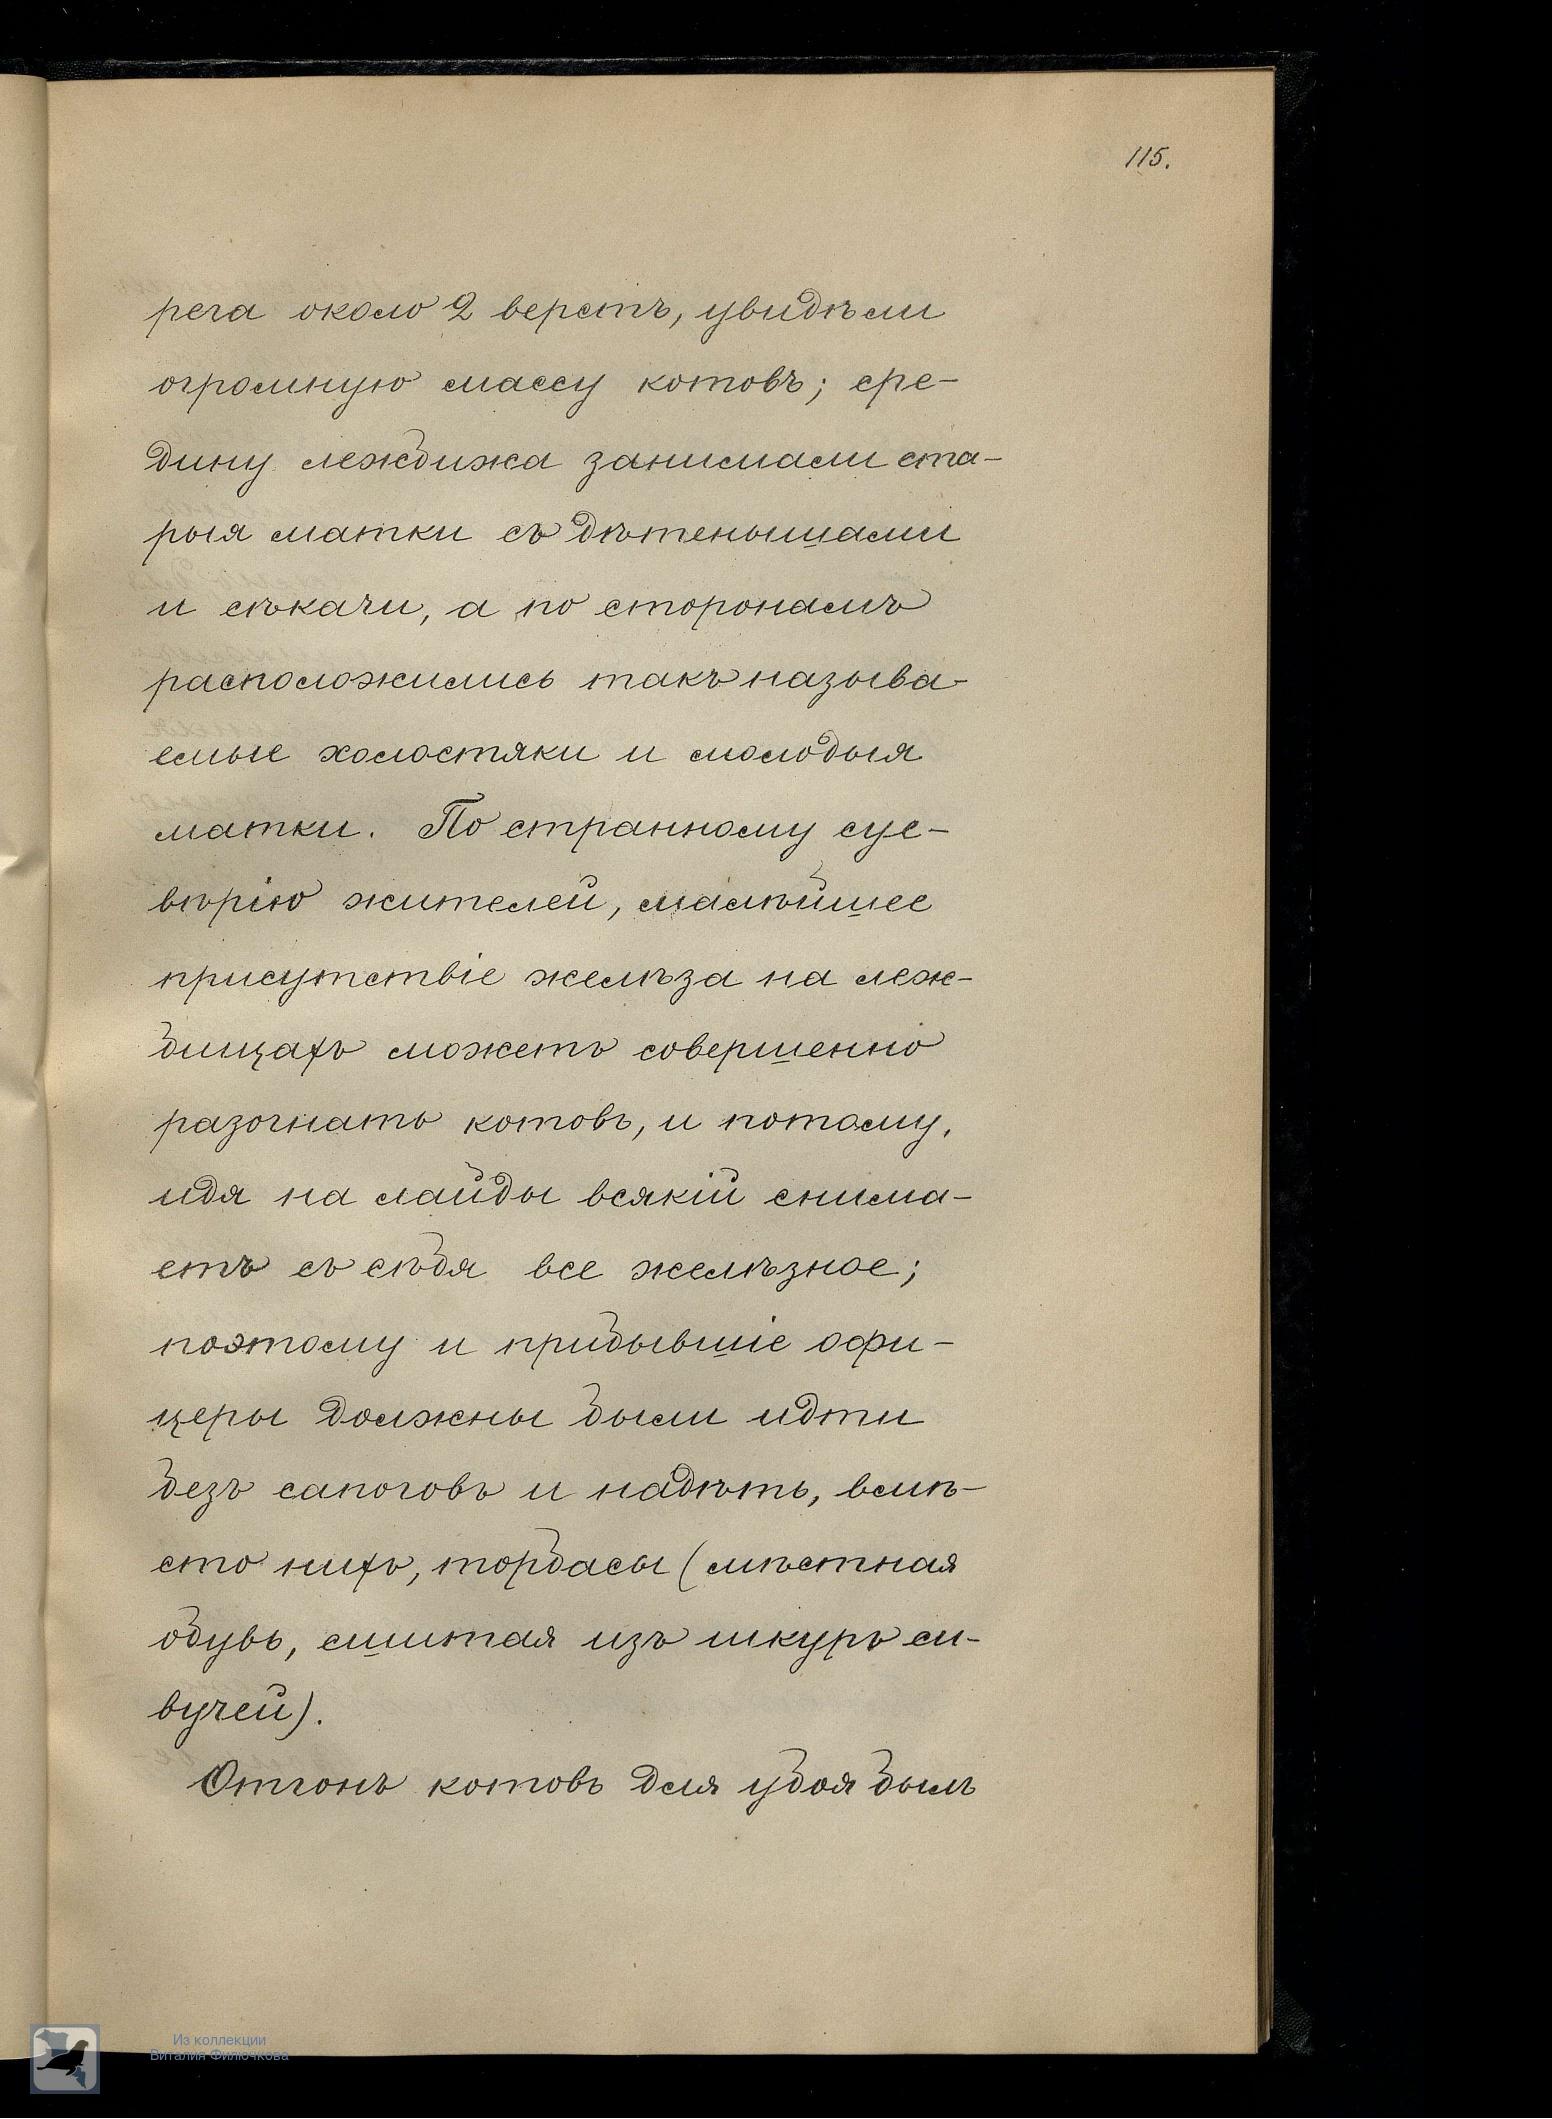 115.
рега около 2 верстъ, увидѣли
огромную массу котовъ; сре-
дину лежбижа занимали ста-
рыя матки съ дѣтенышами
и сѣкачи, а по сторонамъ
расположились такъ называ-
емые холостяки и молодыя
матки. По странному суе-
вѣрію жителей, малѣйшее
присутствіе желѣза на леж-
бищахъ можетъ совершенно
разогнать котовъ, и потому,
идя на лайды всякій снима-
етъ съ сѣбя все желѣзное;
поэтому и прибывшіе офи-
церы должны были идти
безъ сапоговъ и надѣть, вмѣ-
сто нихъ, торбасы (мѣстная
обувь, сшитая изъ шкуръ си-
вучей).
Отгонъ котовъ для убоя былъ
Из коллекции
Виталия Филючкова